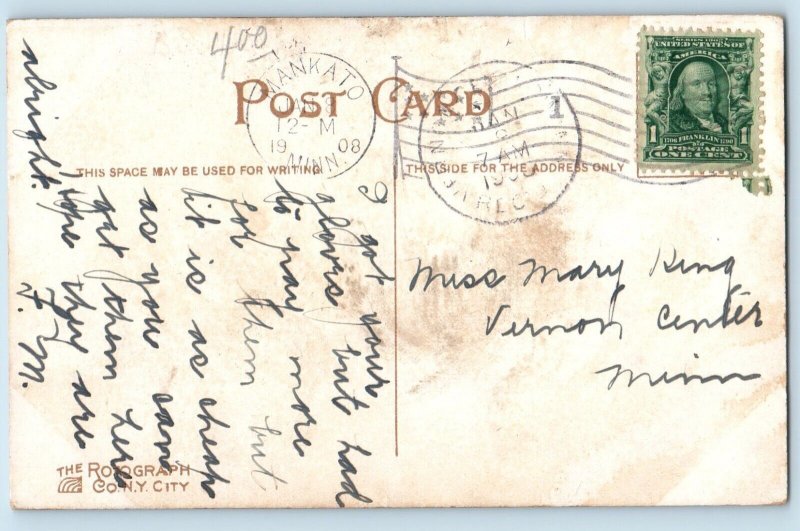 400
MANKATO
JAN
12-M
1908
MINN.
POST CARD
1
JAN
7 AM
REC'D
SERIES 1902
UNITED STATES OF AMERICA
1
1
1706 FRANKLIN 1790
POSTAGE
ONE CENT
THIS SPACE MAY BE USED FOR WRITING
THIS SIDE FOR THE ADDRESS ONLY
I got your
gloves but had
to pay more
for them but
it is as cheap
as you can
get them here
hope they are
alright.
F. M.
Miss Mary King
Vernon Center
Minn
THE ROTOGRAPH
CO. N.Y. CITY